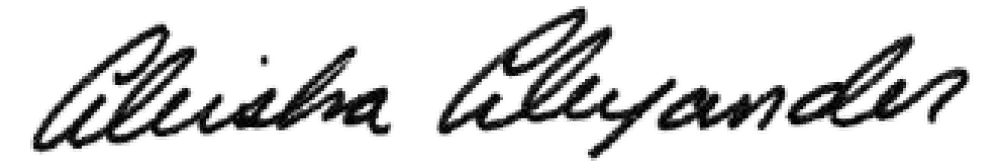 Aleisha Alexander